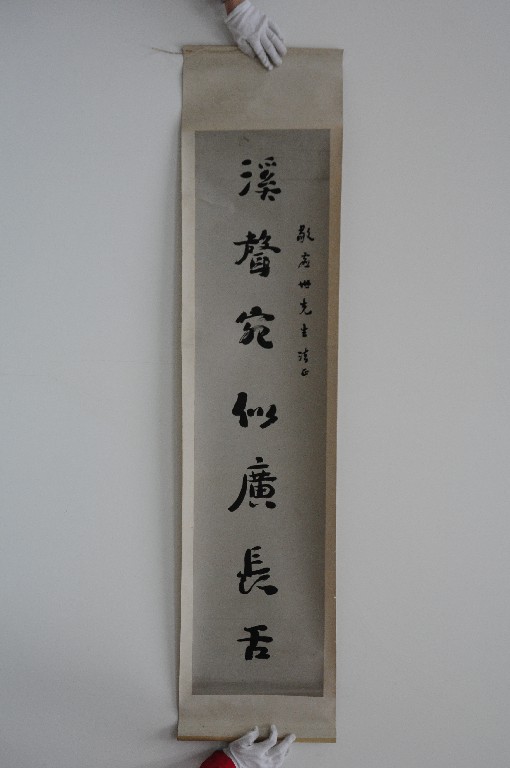 敬唐世先生法正
溪聲宛似廣長舌